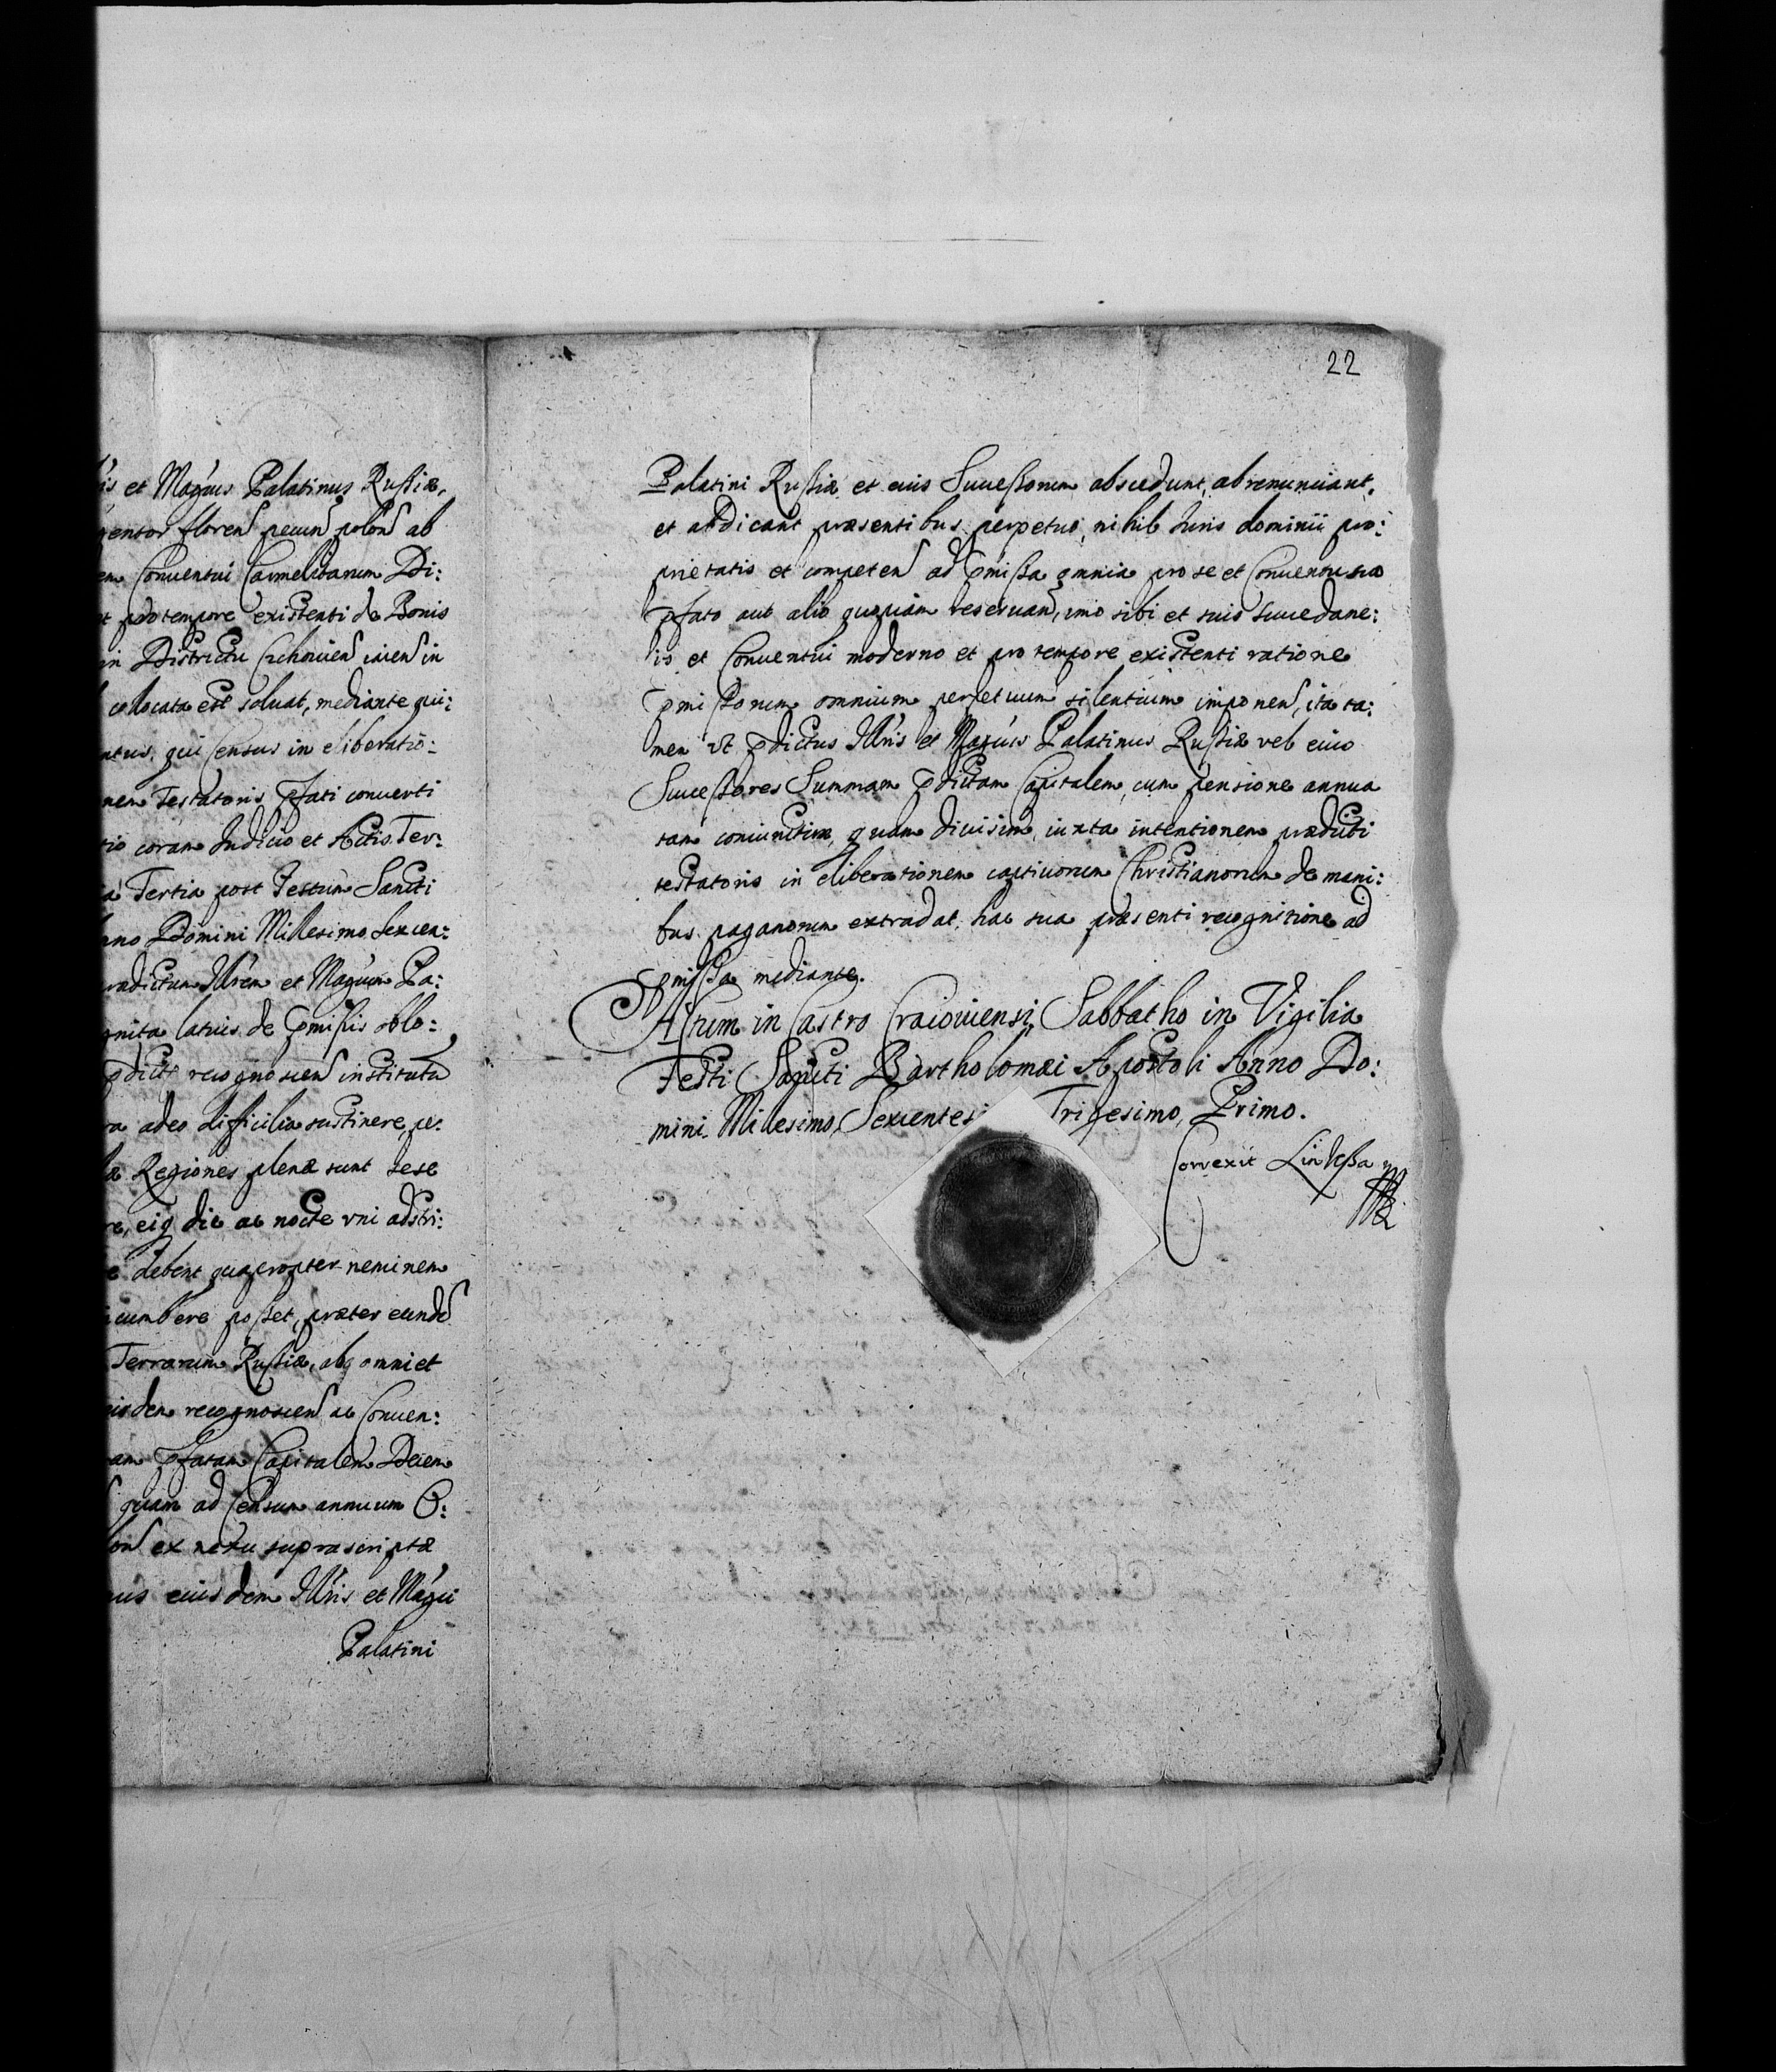 et Magcus Palatinus Russiæ,
floren pecun polon ab
Conuentui Carmelitarum Di:
pro tempore existenti de Bonis
in Districtu
collocata est soluat, mediante qui:
qui Census in eliberatio:
nem Testatoris pfati conuerti
coram Iudicio et Actis Ter:
Tertia post Festum Sancti
Domini Millesimo Sexcen:
Illrem et Magcum Pa:
latius de pmissis oblo:
pdicti recognoscen instituta
adeo difficilia sustinere, pe:
Regiones plenæ sunt sese
eiq die ac nocte vni adstri:
debent quapropter neminem
cumbere posset, præter eund
Terrarum Russiæ, absq omni et
recognoscen ac Conuen:
pfatam Capitalem Decem
quam ad Censum annuum O:
ex nexu suprascriptæ
eiusdem Illris et Magci
Palatini
22
Palatini Russiæ et eius Successorum abscedunt, abrenunciant,
et abdicant præsentibus perpetuo, nihil Iuris dominii pro:
prietatis et competen ad pmissa omnia pro se et Conuentu suo
pfato aut alio quopiam reseruan, imo sibi et suis succedane:
is et Conuentui moderno et pro tempore existenti ratione
pmissorum omnium perpetuum silentium imponen, ita ta:
men vt pdictus Illris et Magcus Palatinus Russiæ vel eius
Successores Summam pdictam Capitalem, cum pensione annua
tam coniunctim, quam diuisim, iuxta intentionem prædicti
testatoris in eliberationem captiuorum Christianorum de mani:
bus paganorum extradat, hac sua præsenti recognitione ad
pmissa mediante.
Actum in Castro Cracouiensi, Sabbatho in Vigilia
Festi Sancti Bartholomæi Apostoli Anno Do:
mini Millesimo, Sexcentesi Trigesimo, Primo.
Correxit